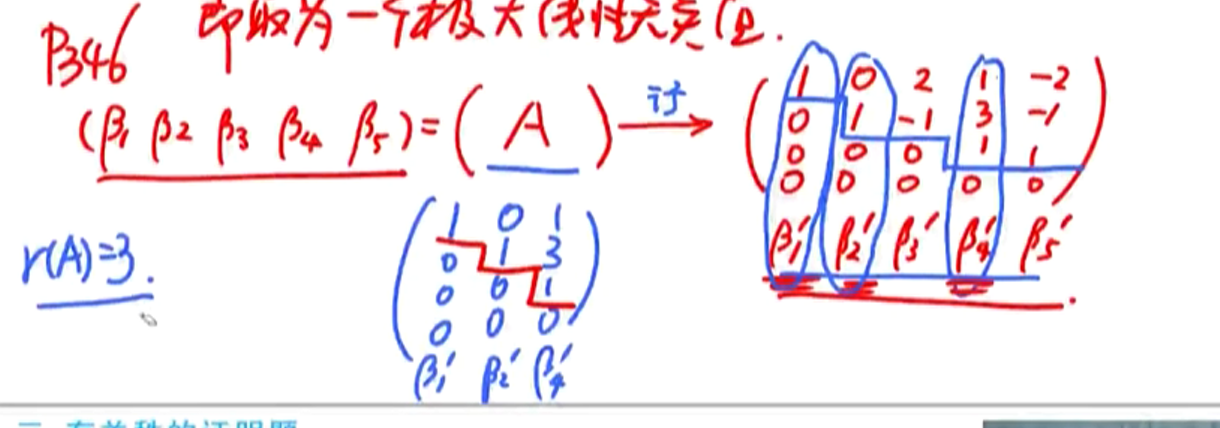 P346 即取为一个极大线性无关组.
(β₁ β₂ β₃ β₄ β₅) = ( A ) 行→
1 0 2 1 -2
0 1 -1 3 -1
0 0 0 1 1
0 0 0 0 0
β₁′ β₂′ β₃′ β₄′ β₅′
r(A)=3.
1 0 1
0 1 3
0 0 1
0 0 0
β₁′ β₂′ β₄′